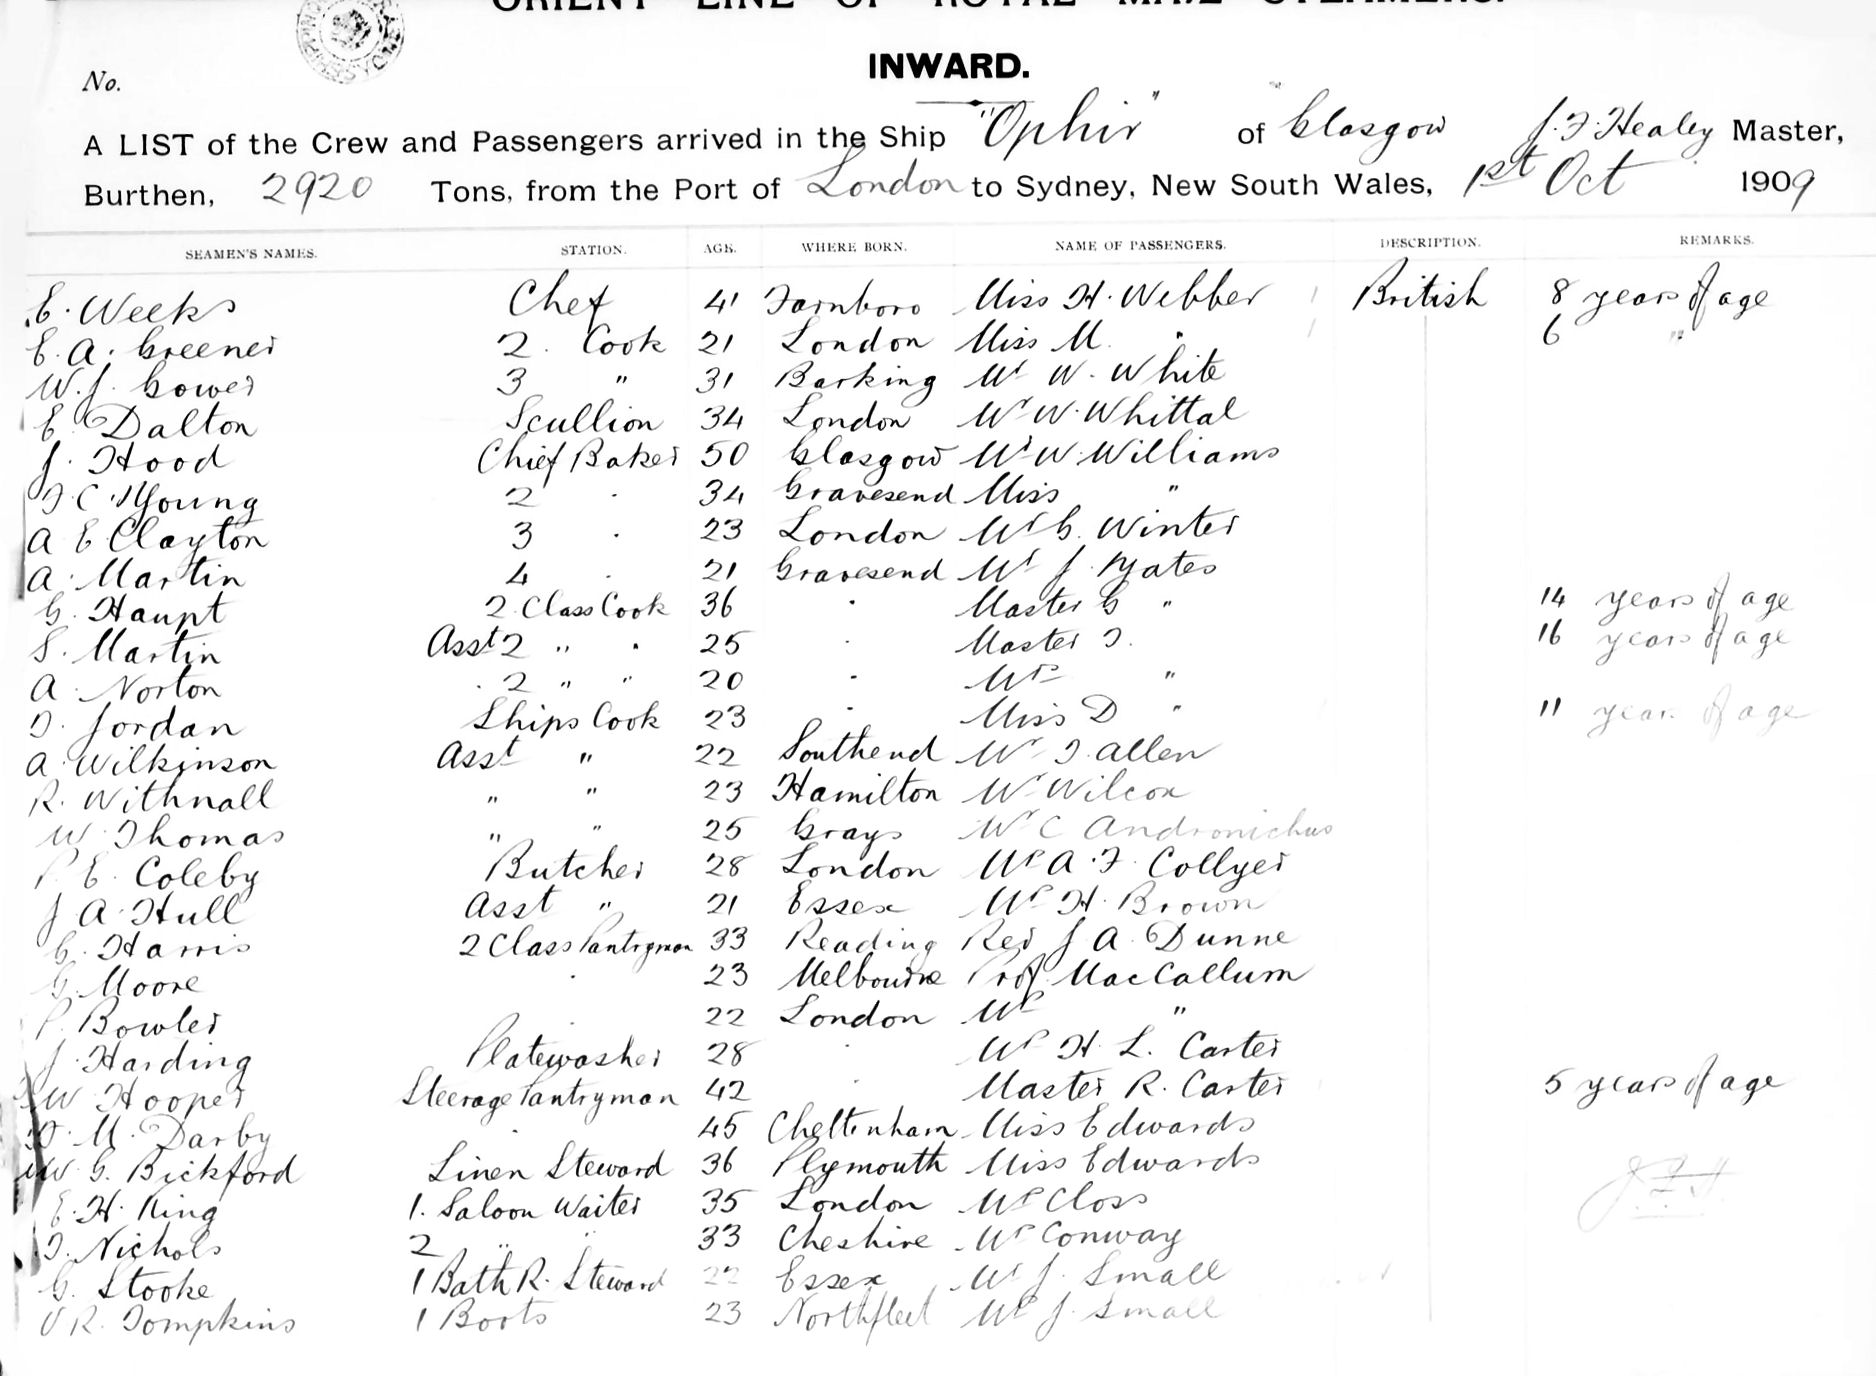 ORIENT LINE OF ROYAL MAIL STEAMERS.
INWARD.
No.
A LIST of the Crew and Passengers arrived in the Ship "Ophir" of Glasgow J. F. Healey Master,
Burthen, 2920 Tons, from the Port of London to Sydney, New South Wales, 1st Oct 1909
SEAMEN'S NAMES. STATION. AGE. WHERE BORN. NAME OF PASSENGERS. DESCRIPTION. REMARKS.
E. Weeks Chef 41 Farnboro Miss H. Webber British 8 years of age
E. A. Greener 2. Cook 21 London Miss M. " 6 "
W. J. Gower 3 " 31 Barking Mr W. White
E. Dalton Scullion 34 London Mr W. Whittal
J. Hood Chief Baker 50 Glasgow Mr W. Williams
F C Young 2 " 34 Gravesend Miss "
A E Clayton 3 " 23 London Mr G. Winter
A. Martin 4 " 21 Gravesend Mr J. Yates
G. Haupt 2 Class Cook 36 " Master G " 14 years of age
S. Martin Asst 2 " " 25 " Master F. 16 years of age
A. Norton " 2 " " 20 " Mrs "
F. Jordan Ships Cook 23 " Miss D " 11 years of age
A. Wilkinson Asst " 22 Southend Mr F. Allen
R. Withnall " " 23 Hamilton Mr Wilcox
W. Thomas " " 25 Grays Mr C Andronichus
P. E. Coleby Butcher 28 London Mrs A. F. Collyer
J A. Hull Asst " 21 Essex Mrs H. Brown
G. Harris 2 Class Pantryman 33 Reading Rev J A. Dunne
G. Moore " 23 Melbourne Prof MacCallum
P. Bowler " 22 London Mrs "
J. Harding Platewasher 28 " Mrs H. L. Carter
W Hooper Steerage Pantryman 42 " Master R. Carter 5 years of age
M. Darby " 45 Cheltenham Miss Edwards
W. G. Bickford Linen Steward 36 Plymouth Miss Edwards
E. H. King 1. Saloon Waiter 35 London Mrs Closs
F. Nichols 2 " " 33 Cheshire Mrs Conway
G. Stooke 1 Bath R. Steward 22 Essex Mr J. Small
V R. Tompkins 1 Boots 23 Northfleet Mrs J. Small